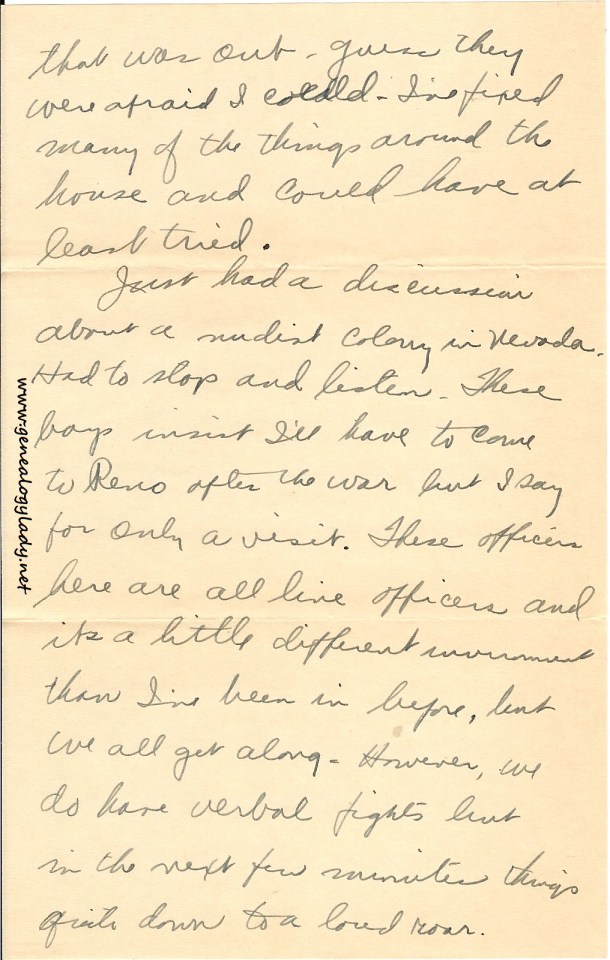 that was out - guess they
were afraid I could - I've fixed
many of the things around the
house and could have at
least tried.
Just had a discussion
about a nudist colony in Nevada.
Had to stop and listen - These
boys insist I'll have to come
to Reno after the war but I say
for only a visit. These officers
here are all line officers and
its a little different invironment
than I've been in before, but
we all get along - However, we
do have verbal fights but
in the next few minutes things
quite down to a loud roar.
www.genealogylady.net